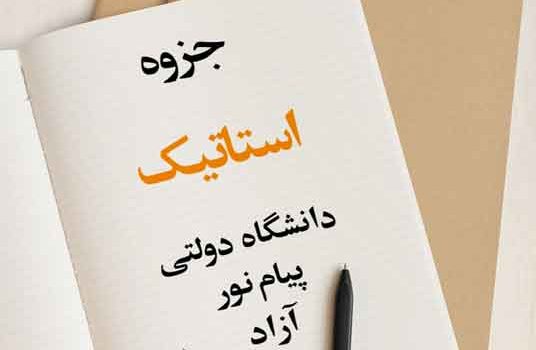 جزوه
استاتیک
دانشگاه دولتی
پیام نور
آزاد